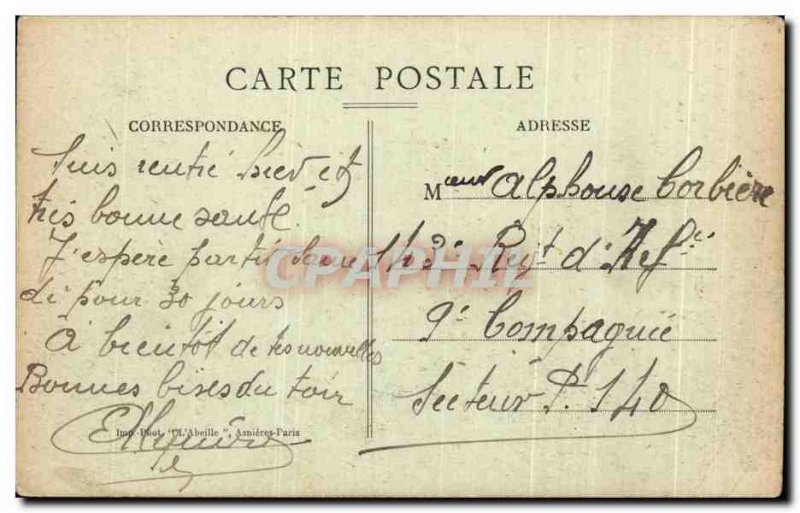 CARTE POSTALE
CORRESPONDANCE
Suis rentré hier et
très bonne santé
J'espère partir Same
di pour 30 jours
A bientôt de tes nouvelles
Bonnes bises du
Imp.-Phot. "L'Abeille", Asnières-Paris
ADRESSE
Mœur Alphonse Corbière
Regt d'Infie
9e Compagnie
Secteur P. 140
CPAPHIL